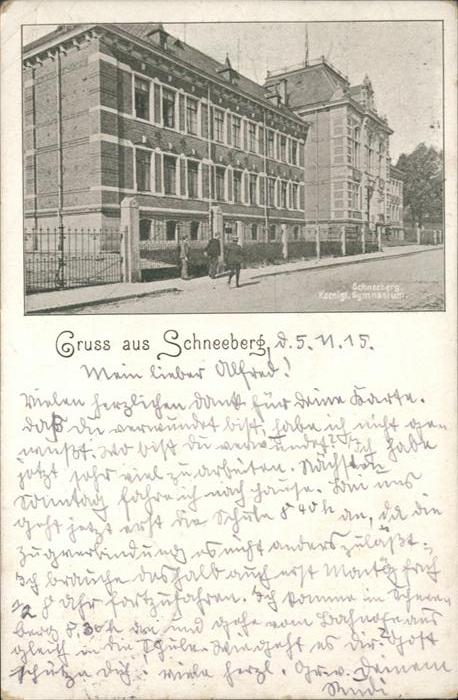 Schneeberg.
Koenigl. Gymnasium.
Gruss aus Schneeberg, d. 5. 11. 15.
Mein lieber Alfred!
Vielen herzlichen Dank für deine Karte.
Daß du verwundet bist, habe ich nicht ge-
wußt. Wo bist du verwundet? Ich habe
jetzt sehr viel zu arbeiten. Nächsten
Sonntag fahre ich nach Hause. Bei uns
geht jetzt erst die Schule 8 40 h an, da die
Zugverbindung es nicht anders zuläßt.
Ich brauche deshalb auch erst Montag früh
1/2 8 Uhr fortzufahren. Ich komme in Schnee-
berg 8,30 h an und gehe vom Bahnhof aus
gleich in die Schule. Wie geht es dir? Gott
schütze dich. Viele herzl. Grüße. Deinem